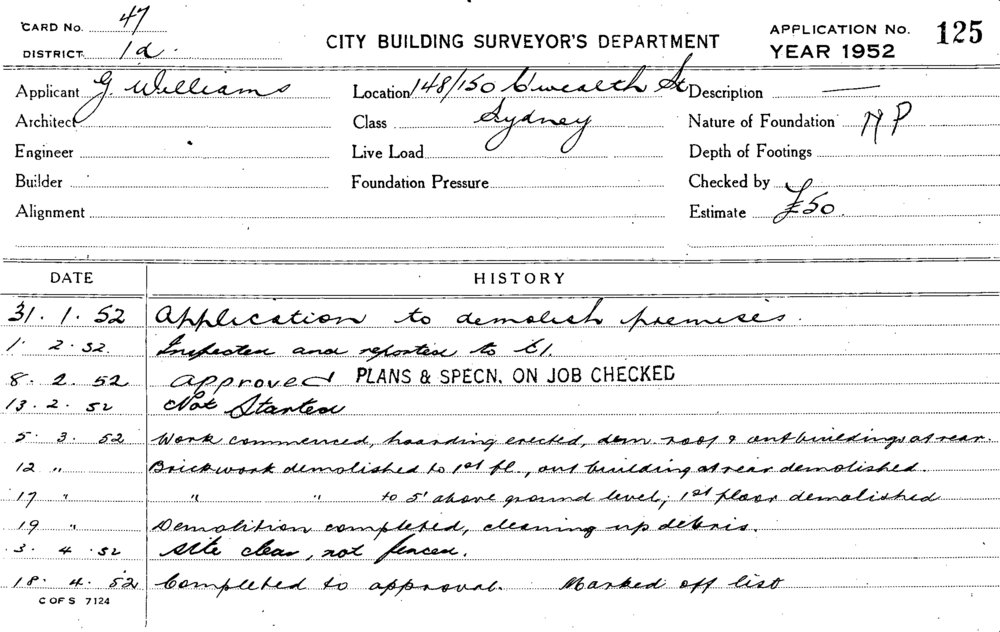 CARD No. 47
DISTRICT 1d.
CITY BUILDING SURVEYOR'S DEPARTMENT
APPLICATION No. 125
YEAR 1952
Applicant G. Williams
Location 148/150 C'wealth St
Description —
Architect
Class Sydney
Nature of Foundation
Engineer
Live Load
Depth of Footings
Builder
Foundation Pressure
Checked by
Alignment
Estimate £50.
DATE HISTORY
31. 1. 52 Application to demolish premises.
1. 2. 52. Inspected and reported to
8. 2. 52 Approved PLANS & SPECN. ON JOB CHECKED
13. 2. 52 Not Started
5. 3. 52 Work commenced, hoarding erected, dem. roof & outbuildings at rear.
12 " Brickwork demolished to 1st fl., out building at rear demolished.
17 " " " to 5' above ground level, 1st floor demolished
19 " Demolition completed, cleaning up debris.
3. 4. 52 Site clear, not fenced.
18. 4. 52 Completed to approval. Marked off list
C OF S 7124